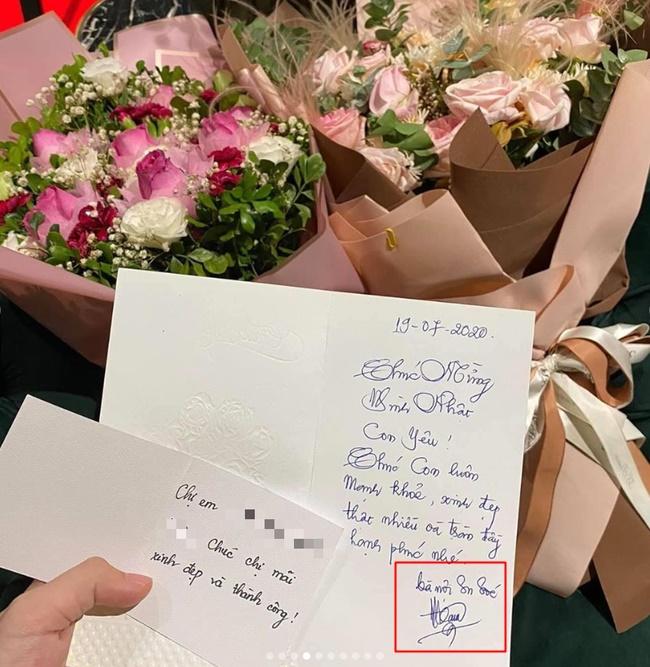 19-07-2020.
Chúc Mừng
Sinh Nhật
Con Yêu!
Chúc Con luôn
Mạnh khoẻ, xinh đẹp
thật nhiều và tràn đầy
hạnh phúc nhé.
bà nội
Chị em
Chúc chị mãi
xinh đẹp và thành công!